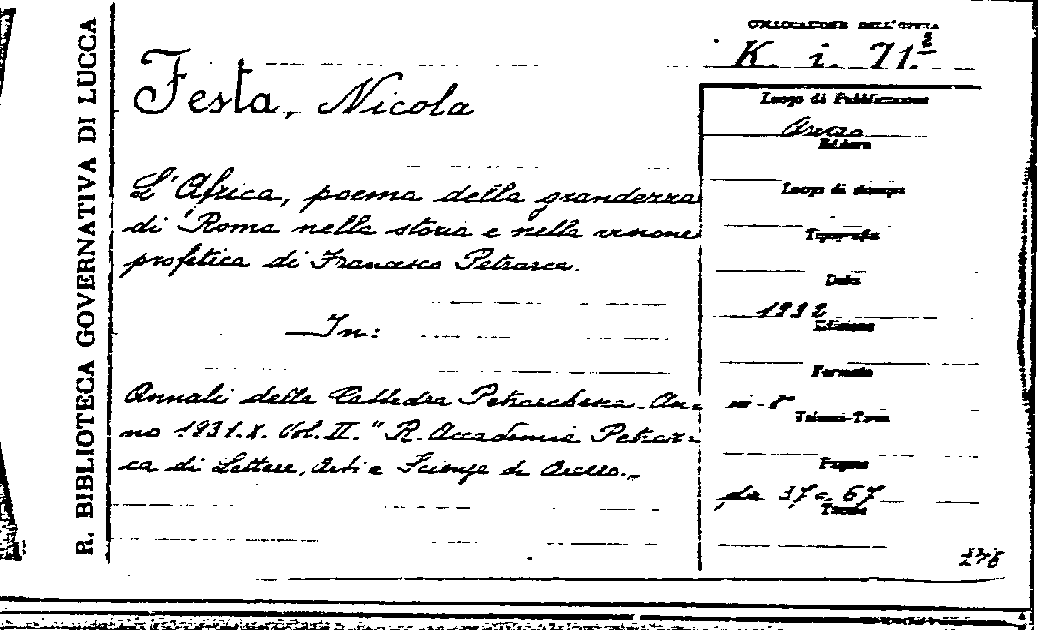 R. BIBLIOTECA GOVERNATIVA DI LUCCA
COLLOCAZIONE DELL'OPERA
K. i. 71.
Festa, Nicola
L'Africa, poema della grandezza
di Roma nella storia e nella visione
profetica di Francesco Petrarca.
In:
Annali della Cattedra Petrarchesca. An-
no 1931.X. Vol. II. " R. Accademia Petrar-
ca di Lettere, Arti e Scienze di Arezzo.
Luogo di Pubblicazione
Arezzo
Editore
Luogo di stampa
Tipografia
Data
1932
Edizione
Formato
in-8°
Volumi-Tomi
Pagine
da 37 a 67
Tavole